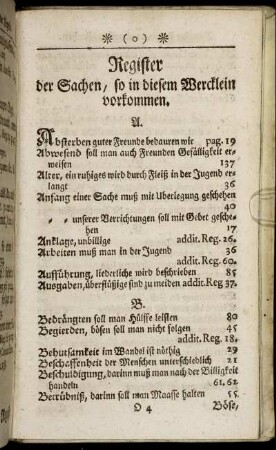 * ( o ) *
Register
der Sachen, so in diesem Wercklein
vorkommen.
A.
Absterben guter Freunde bedauren wir pag. 19
Abwesend soll man auch Freunden Gefälligkeit er-
weisen 137
Alter, ein ruhiges wird durch Fleiß in der Jugend er-
langt 36
Anfang einer Sache muß mit Uberlegung geschehen
40
" " unserer Verrichtungen soll mit Gebet gesche-
hen 17
Anklage, unbillige addit. Reg. 26.
Arbeiten muß man in der Jugend 36
addit. Reg. 60.
Aufführung, liederliche wird beschrieben 85
Ausgaben, überflüßige sind zu meiden addit. Reg 37.
B.
Bedrängten soll man Hülffe leisten 80
Begierden, bösen soll man nicht folgen 45
addit. Reg. 18.
Behutsamkeit im Wandel ist nöthig 29
Beschaffenheit der Menschen unterschiedlich 21
Beschuldigung, darinn muß man nach der Billigkeit
handeln 61. 62
Betrübniß, darinn soll man Maasse halten 55.
D 4 Böse,